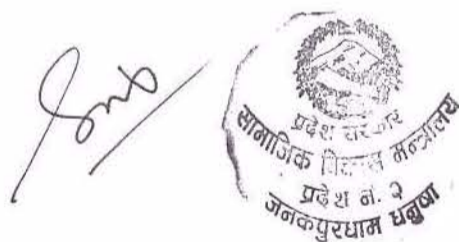 प्रदेश सरकार
सामाजिक विकास मन्त्रालय
प्रदेश नं. २
जनकपुरधाम धनुषा